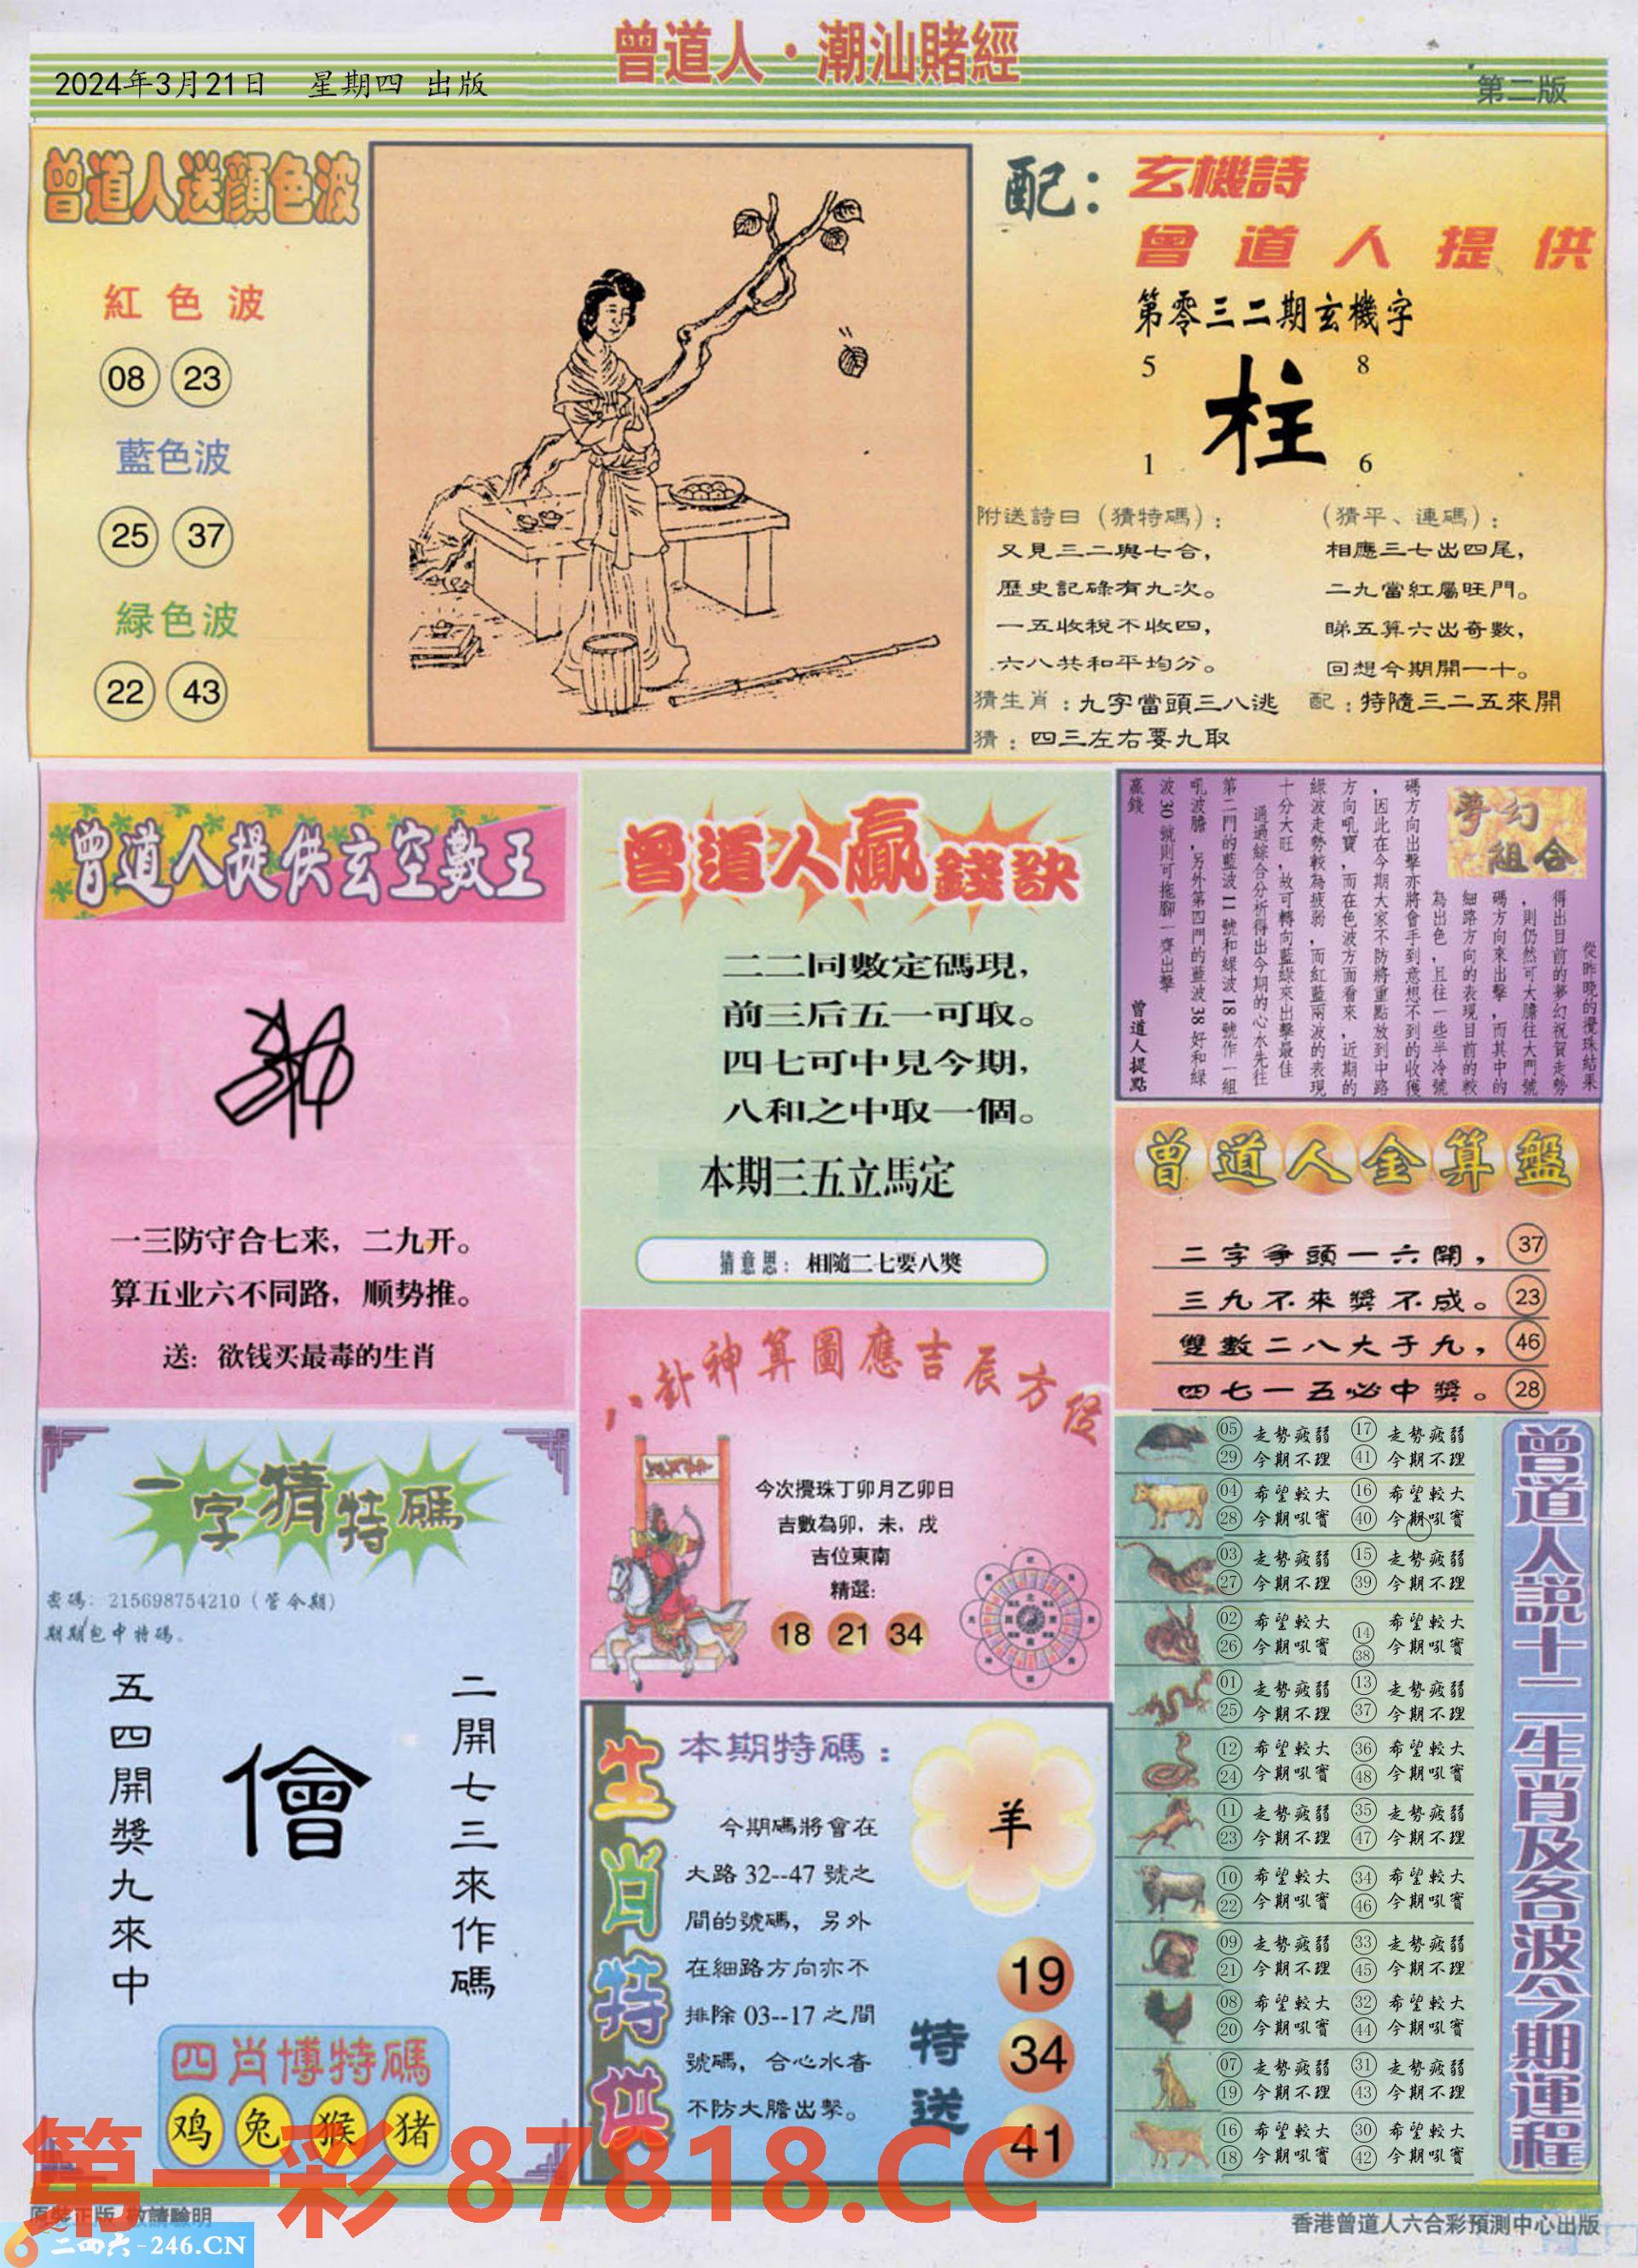 曾道人·潮汕賭經
2024年3月21日 星期四 出版
第二版
曾道人送顔色波
紅色波
08 23
藍色波
25 37
緑色波
22 43
配：玄機詩
曾道人提供
第零三二期玄機字
5 8
柱
1 6
附送詩曰（猜特碼）：
又見三二與七合，
歷史記碌有九次。
一五收税不收四，
六八共和平均分。
（猜平、連碼）：
相應三七出四尾，
二九當紅屬旺門。
睇五算六出奇數，
回想今期開一十。
猜生肖：九字當頭三八逃
配：特隨三二五來開
猜：四三左右要九取
曾道人提供玄空數王
一三防守合七来，二九开。
算五业六不同路，顺势推。
送：欲钱买最毒的生肖
曾道人贏錢訣
二二同數定碼現，
前三后五一可取。
四七可中見今期，
八和之中取一個。
本期三五立馬定
猜意思：相隨二七要八獎
夢幻
組合
從昨晚的攪珠結果
得出目前的夢幻祝賀走勢
，則仍然可大膽往大門號
碼方向來出擊，而其中的
細路方向的表現目前的較
為出色，且往一些半冷號
碼方向出擊亦將會手到意想不到的收獲
，因此在今期大家不防將重點放到中路
方向吼寶，而在色波方面看來，近期的
綠波走勢較為疲弱，而紅藍兩波的表現
十分大旺，故可轉向藍綠來出擊最佳
通過綜合分析得出今期的心水先往
第二門的藍波11號和綠波18號作一組
吼波膽，另外第四門的藍波38好和綠
波30號則可拖腳一齊出擊
贏錢
曾道人提點
曾道人金算盤
二字爭頭一六開，37
三九不來獎不成。23
雙數二八大于九，46
四七一五必中獎。28
八卦神算圖應吉辰方位
今次攪珠丁卯月乙卯日
吉數為卯，未，戌
吉位東南
精選：
18 21 34
一字猜特碼
密碼：215698754210（管今期）
期期包中特碼。
五四開獎九來中
儈
二開七三來作碼
四肖博特碼
鸡 兔 猴 猪
生肖特供
本期特碼：
羊
今期碼將會在
大路32--47號之
間的號碼，另外
在細路方向亦不
排除03--17之間
號碼，合心水者
不防大膽出擊。
特送
19
34
41
曾道人說十二生肖及各波今期運程
05 走勢疲弱 17 走勢疲弱
29 今期不理 41 今期不理
04 希望較大 16 希望較大
28 今期吼寶 40 今期吼寶
03 走勢疲弱 15 走勢疲弱
27 今期不理 39 今期不理
02 希望較大 14 希望較大
26 今期吼寶 38 今期吼寶
01 走勢疲弱 13 走勢疲弱
25 今期不理 37 今期不理
12 希望較大 36 希望較大
24 今期吼寶 48 今期吼寶
11 走勢疲弱 35 走勢疲弱
23 今期不理 47 今期不理
10 希望較大 34 希望較大
22 今期吼寶 46 今期吼寶
09 走勢疲弱 33 走勢疲弱
21 今期不理 45 今期不理
08 希望較大 32 希望較大
20 今期吼寶 44 今期吼寶
07 走勢疲弱 31 走勢疲弱
19 今期不理 43 今期不理
16 希望較大 30 希望較大
18 今期吼寶 42 今期吼寶
第一彩 87818.CC
原裝正版 敬請驗明
二四六-246.CN
香港曾道人六合彩預測中心出版